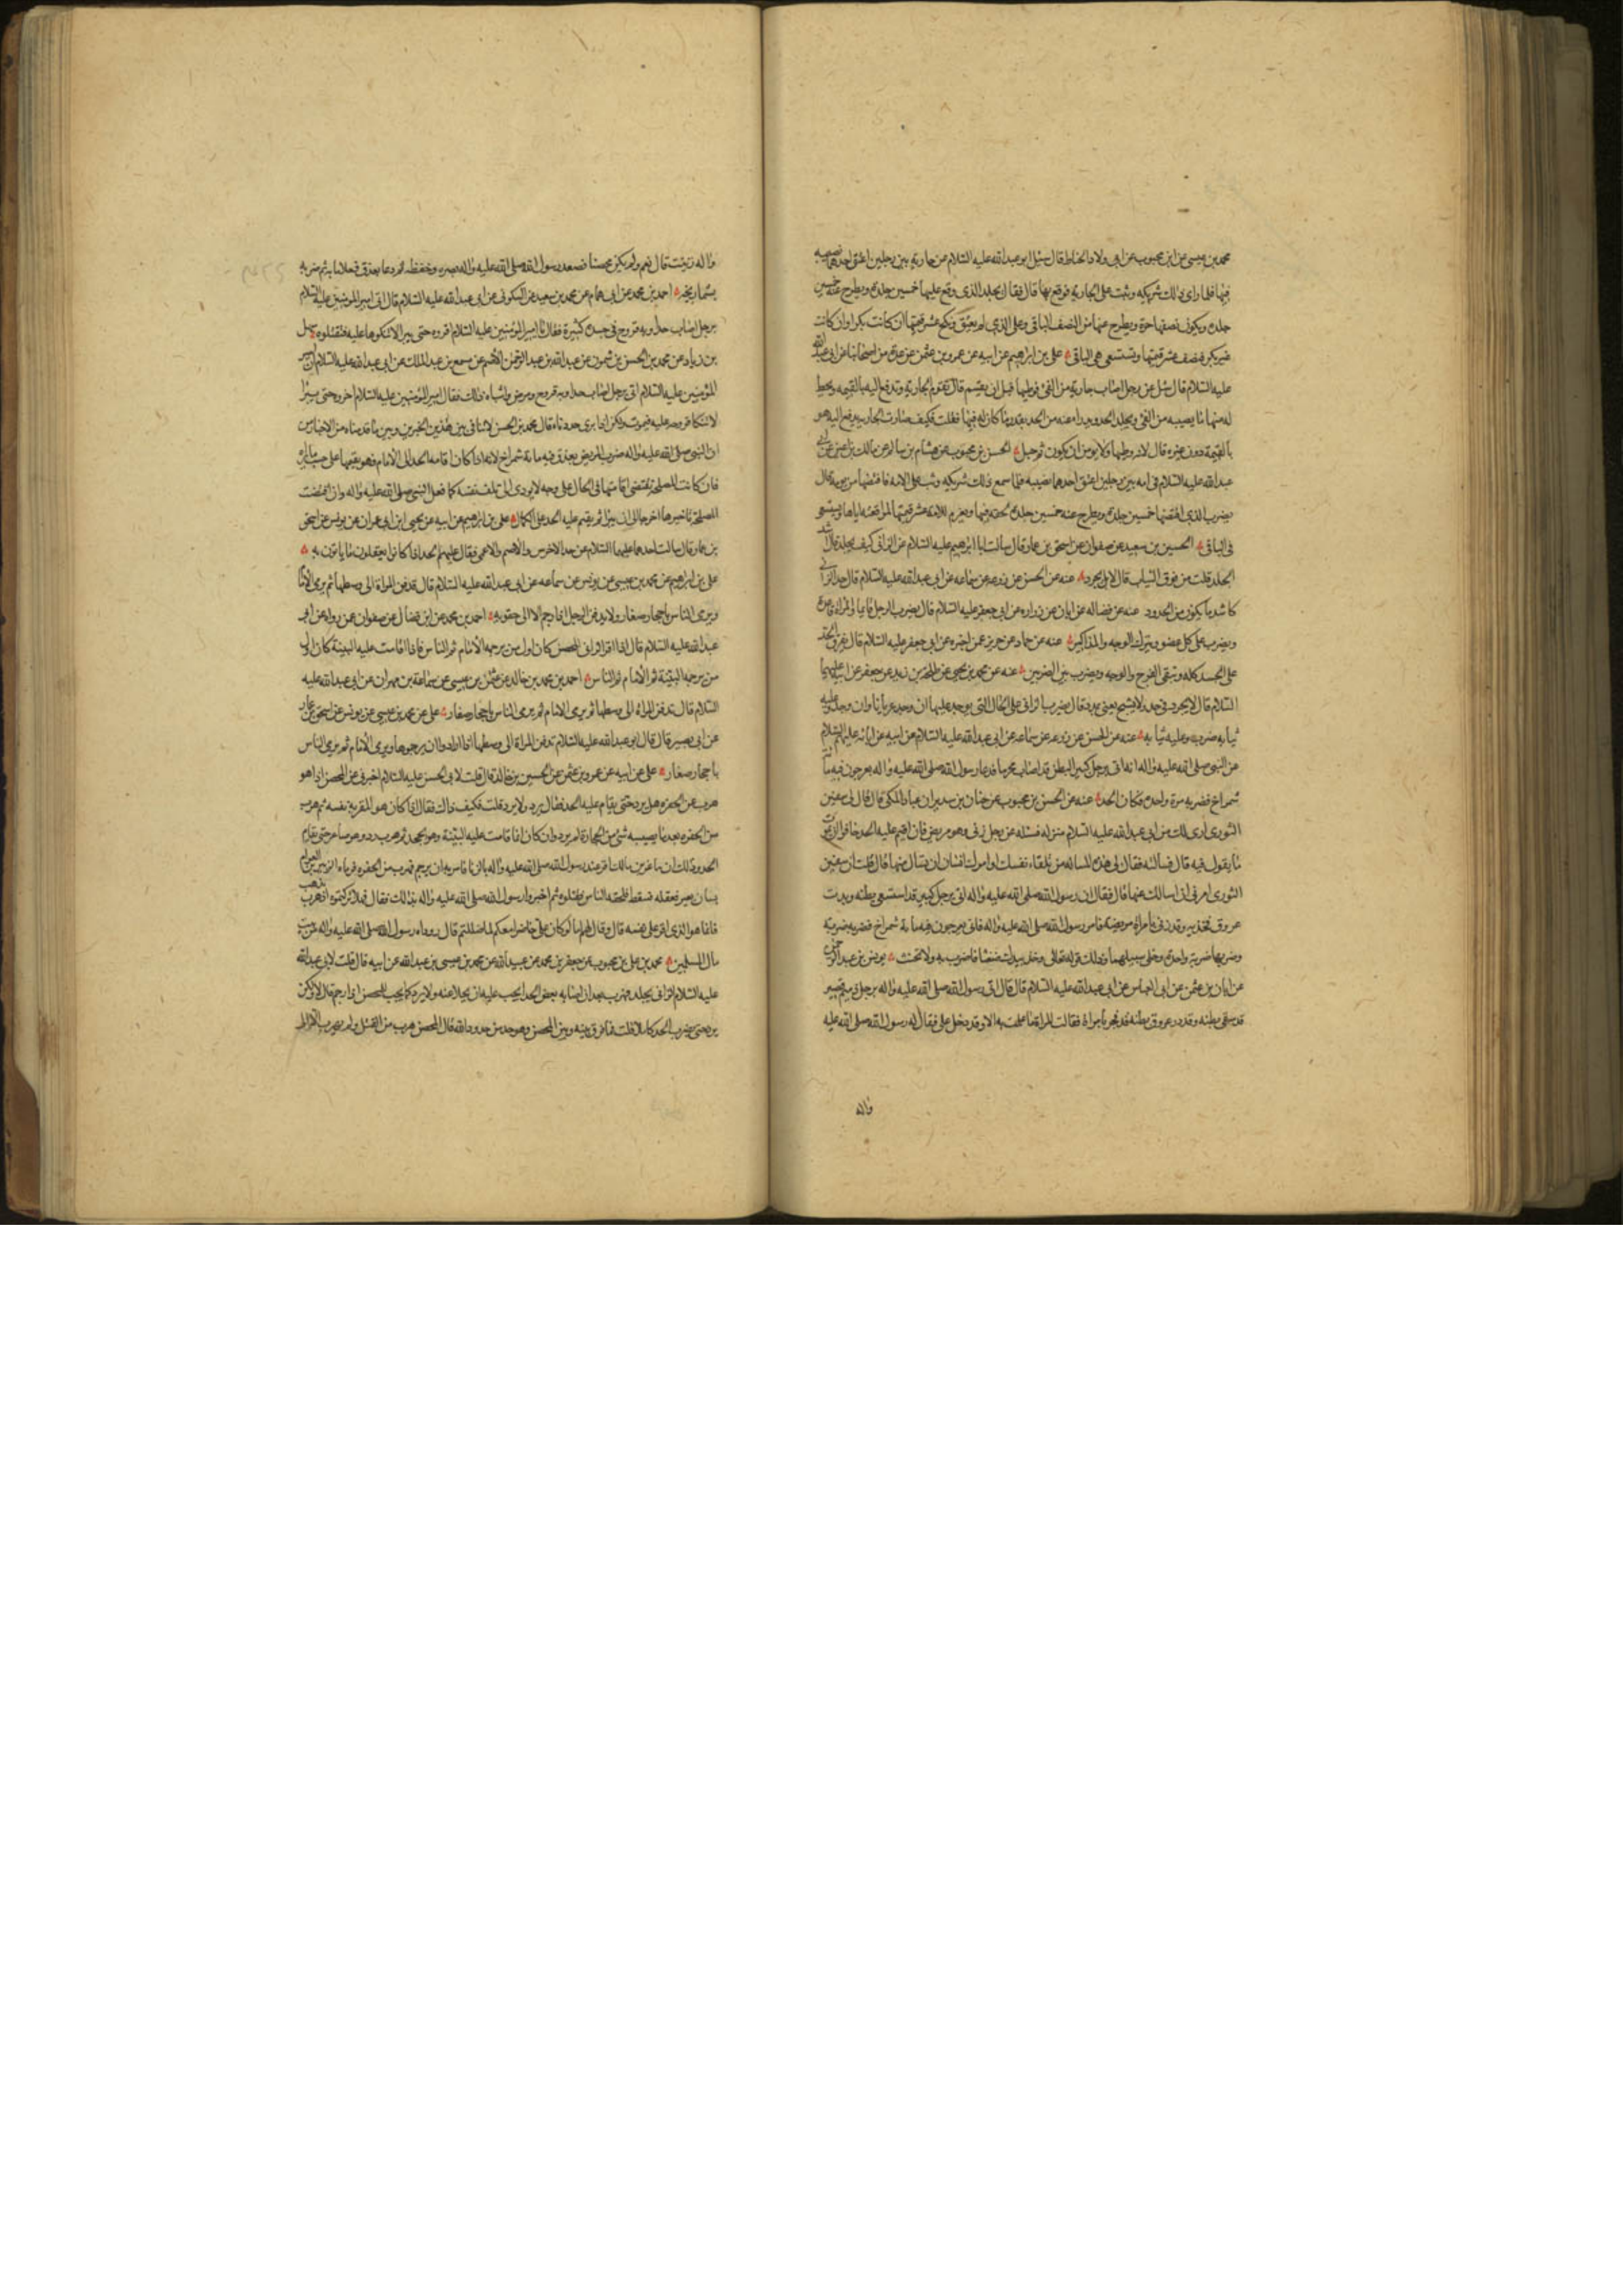 محمد بن عيسى عن ابن محبوب عن ابى ولاد الحناط قال سئل ابو عبد الله عليه السلام عن جارية بين رجلين اعتق احدهما نصيبه
فيها فلما راى ذلك شريكه وثب على الجارية فوقع بها قال فقال يجلد الذى وقع عليها خمسين جلدة ويطرح عنه خمسين
جلدة ويكون نصفها حرة ويطرح عنها من النصف الباقى وعلى الذى لم يعتق ونكح عشر قيمتها ان كانت بكرا وان كانت
غير بكر فنصف عشر قيمتها وتستسعى هى الباقى على بن ابراهيم عن ابيه عن عمرو بن عثمن عن عدة من اصحابنا عن ابى عبد الله
عليه السلام قال سئل عن رجل اصاب جارية من الفئ فوطيها قبل ان يقسم قال تقوم الجارية وتدفع اليه بالقيمه ويحط
له منها ما يصيبه من الفئ ويجلد الحد ويدرا عنه من الحد بقدر ما كان له فيها فقلت فكيف صارت الجارية يدفع اليه هو
بالقيمة دون غيره قال لانه وطيها ولا يومن ان يكون ثم حبل الحسن بن محبوب عن هشام بن سالم عن مالك بن اعين عن ابى
عبد الله عليه السلام فى امه بين رجلين اعتق احدهما نصيبه فلما سمع ذلك شريكه وثب على الامه فافتضها من يومه قال
يضرب الذى افتضها خمسين جلدة ويطرح عنه خمسين جلدة لحقه فيها ويغرم للامة عشر قيمتها لمواقعته اياها وتستسعى
فى الباقى الحسين بن سعيد عن صفوان عن اسحق بن عمار قال سالت ابا ابرهيم عليه السلام عن الزانى كيف يجلد قال اشد
الجلد قلت من فوق الثياب قال لا بل يجرد عنه عن الحسن عن زرعه عن سماعه عن ابى عبد الله عليه السلام قال حد الزانى
كاشد ما يكون من الحدود عنه عن فضاله عن ابان عن زراره عن ابى جعفر عليه السلام قال يضرب الرجل قايما والمراة قاعدة
ويضرب على كل عضو ويترك الوجه والمذاكير عنه عن حماد عن حريز عمن اخبره عن ابى جعفر عليه السلام قال يفرق الحد
على الجسد كله ويتقى الفرج والوجه ويضرب بين الضربين عنه عن محمد بن يحيى عن طلحة بن زيد عن جعفر عن ابيه عليهما
السلام قال لا يجرد فى حد ولا يشبح يعنى يمد وقال يضرب الزانى على الحال التى يوجد عليها ان وجد عريانا وان وجد وعليه
ثيابه ضرب وعليه ثيابه عنه عن الحسن عن زرعه عن سماعه عن ابى عبد الله عليه السلام عن ابيه عن ابائه عليهم السلام
عن النبى صلى الله عليه واله انه اتى برجل كبير البطن قد اصاب محرما فدعا رسول الله صلى الله عليه واله بعرجون فيه مأة
شمراخ فضربه مرة واحدة فكان الحد عنه عن الحسن بن محبوب عن حنان بن سدير ان عباد المكى قال قال لى سفين
الثورى ارى لك من ابى عبد الله عليه السلام منزله فسئله عن رجل زنى وهو مريض فان اقيم عليه الحد خافوا ان يموت
ما يقول فيه قال فسالته فقال لى هذه المساله من تلقاء نفسك او امرك انسان ان يسال عنها قال قلت ان سفين
الثورى امرنى ان اسالك عنها قال فقال ان رسول الله صلى الله عليه واله اتى برجل كبير قد استسقى بطنه وبدت
عروق فخذيه وقد زنى بامراة مريضة فامر رسول الله صلى الله عليه واله فاتى بعرجون فيه مأة شمراخ فضربه ضربة
وضربها ضربة واحدة وخلى سبيلهما وذلك قوله تعالى وخذ بيدك ضغثا فاضرب به ولا تحنث يونس بن عبد الرحمن
عن ابان بن عثمن عن ابى العباس عن ابى عبد الله عليه السلام قال قال اتى رسول الله صلى الله عليه واله برجل دميم قصير
قد سقى بطنه وقد در عروق بطنه قد فجر بامراة فقالت المراة ما علمت به الا وقد دخل على فقال له رسول الله صلى الله عليه
واله
واله زنيت قال نعم ولم يكن محصنا فصعد رسول الله صلى الله عليه واله بصره وخفضه ثم دعا بعذق فعده مائة ثم ضربه
بشماريخه احمد بن محمد عن ابى همام عن محمد بن سعيد عن السكونى عن ابى عبد الله عليه السلام قال اتى امير المومنين عليه السلام
برجل اصاب حدا وبه قروح فى جسده كثيرة فقال امير المومنين عليه السلام اقروه حتى يبرا لا تنكوها عليه فتقتلوه سهل
بن زياد عن محمد بن الحسن بن شمون عن عبد الله بن عبد الرحمن الاصم عن مسمع بن عبد الملك عن ابى عبد الله عليه السلام ان امير
المؤمنين عليه السلام اتى برجل اصاب حدا وبه قروح ومرض واشباه ذلك فقال امير المؤمنين عليه السلام اخروه حتى يبرا
لا تنكا قروحه عليه فيموت ولكن اذا برئ حددناه قال محمد بن الحسن لا تنافى بين هذين الخبرين وبين ما قدمناه من الاخبار من
ان النبى صلى الله عليه واله ضرب المريض بعذق فيه مائة شمراخ لانه اذا كان اقامه الحد الى الامام فهو يقيمها على حسب ما يراه
فان كانت المصلحة تقتضى اقامتها فى الحال على وجه لا يودى الى تلف نفسه كما فعل النبى صلى الله عليه واله وان اقتضت
المصلحة تاخيرها اخرها الى ان يبرا ثم يقيم عليه الحد على الكمال على بن ابراهيم عن ابيه عن يحيى ابن ابى عمران عن يونس عن اسحق
بن عمار قال سالت احدهما عليهما السلام عن حد الاخرس والاصم والاعمى فقال عليهم الحد اذا كانوا يعقلون ما ياتون به
على بن ابراهيم عن محمد بن عيسى عن يونس عن سماعه عن ابى عبد الله عليه السلام قال تدفن المراة الى وسطها ثم يرمى الامام
ويرمى الناس باحجار صغار ولا يدفن الرجل اذا رجم الا الى حقويه احمد بن محمد عن ابن فضال عن صفوان عمن رواه عن ابى
عبد الله عليه السلام قال اذا اقر الزانى المحصن كان اول من يرجمه الامام ثم الناس فاذا قامت عليه البينة كان اول
من يرجمه البينة ثم الامام ثم الناس احمد بن محمد بن خالد عن عثمن بن عيسى عن سماعة بن مهران عن ابى عبد الله عليه
السلام قال تدفن المراة الى وسطها ثم يرمى الامام ثم يرمى الناس باحجار صغار على عن محمد بن عيسى عن يونس عن اسحق بن عمار
عن ابى بصير قال قال ابو عبد الله عليه السلام تدفن المراة الى وسطها اذا ارادوا ان يرجموها ويرمى الامام ثم يرمى الناس
باحجار صغار على عن ابيه عن عمرو بن عثمن عن الحسين بن خالد قال قلت لابى الحسن عليه السلام اخبرنى عن المحصن اذا هو
هرب من الحفره هل يرد حتى يقام عليه الحد فقال يرد ولا يرد قلت فكيف ذاك فقال اذا كان هو المقر على نفسه ثم هرب
من الحفره بعد ما يصيبه شئ من الحجارة لم يرد وان كان انما قامت عليه البينة وهو يجحد ثم هرب رد وهو صاغر حتى يقام
الحد وذلك ان ماعز بن مالك اقر عند رسول الله صلى الله عليه واله بالزنا فامر به ان يرجم فهرب من الحفره فرماه الزبير بن العوام
بساق بعير فعقله فسقط فلحقه الناس فقتلوه ثم اخبروا رسول الله صلى الله عليه واله بذلك فقال فهلا تركتموه اذ هرب يذهب
فانما هو الذى اقر على نفسه قال وقال لهم اما لو كان على حاضرا معكم لما ضللتم قال ووداه رسول الله صلى الله عليه واله من بيت
مال المسلمين محمد بن على بن محبوب عن جعفر بن محمد عن عبيد الله عن محمد بن عيسى بن عبد الله عن ابيه قال قلت لابى عبد الله
عليه السلام الزانى يجلد فيهرب بعد ان اصابه بعض الحد ايجب عليه ان يخلا عنه ولا يرد كما يجب للمحصن اذا رجم قال لا ولكن
يرد حتى يضرب الحد كاملا قلت فما فرق بينه وبين المحصن وهو حد من حدود الله قال المحصن هرب من القتل ولم يهرب الا الى